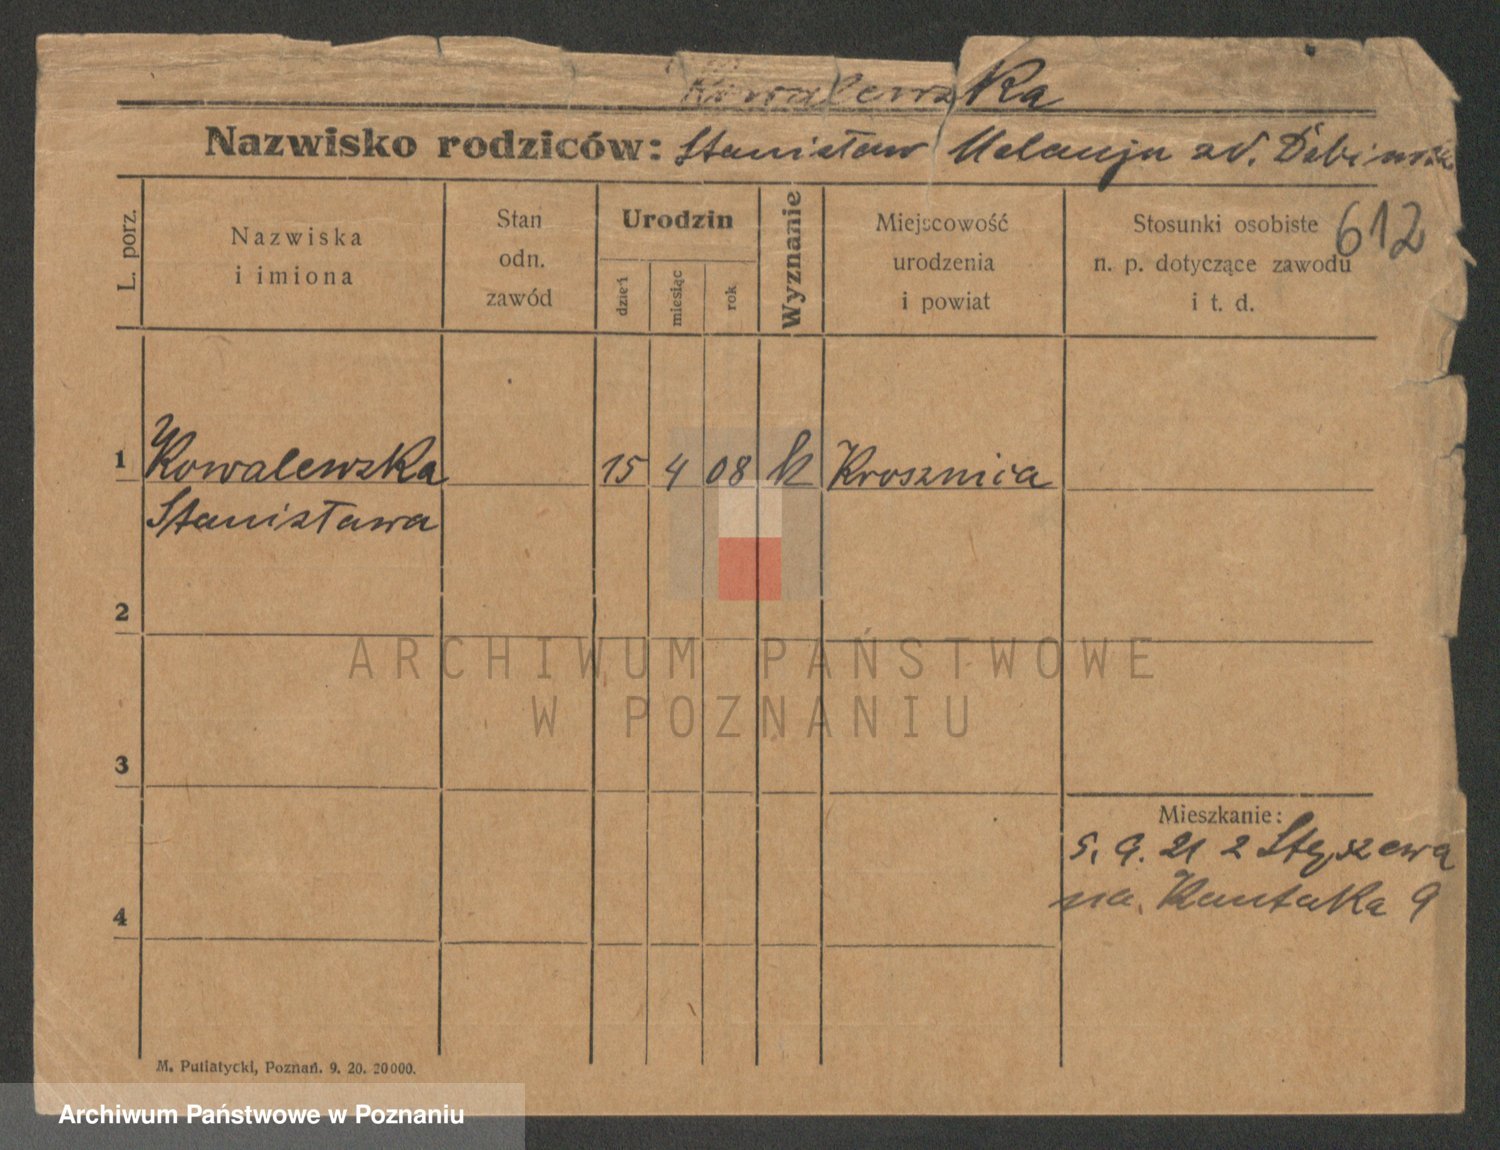 Kowalewska
Nazwisko rodziców: Stanisław Melanja zd. Dębińska
612
L. porz.
Nazwiska
i imiona
Stan
odn.
zawód
Urodzin
dzień
miesiąc
rok
Wyznanie
Miejscowość
urodzenia
i powiat
Stosunki osobiste
n. p. dotyczące zawodu
i t. d.
1 Kowalewska 15 4 08 k Krosznica
Stanisława
2
ARCHIWUM PAŃSTWOWE
W POZNANIU
3
Mieszkanie:
5. 9. 21 z
na Kantaka 9
4
M. Putiatycki, Poznań. 9. 20. 20000.
Archiwum Państwowe w Poznaniu